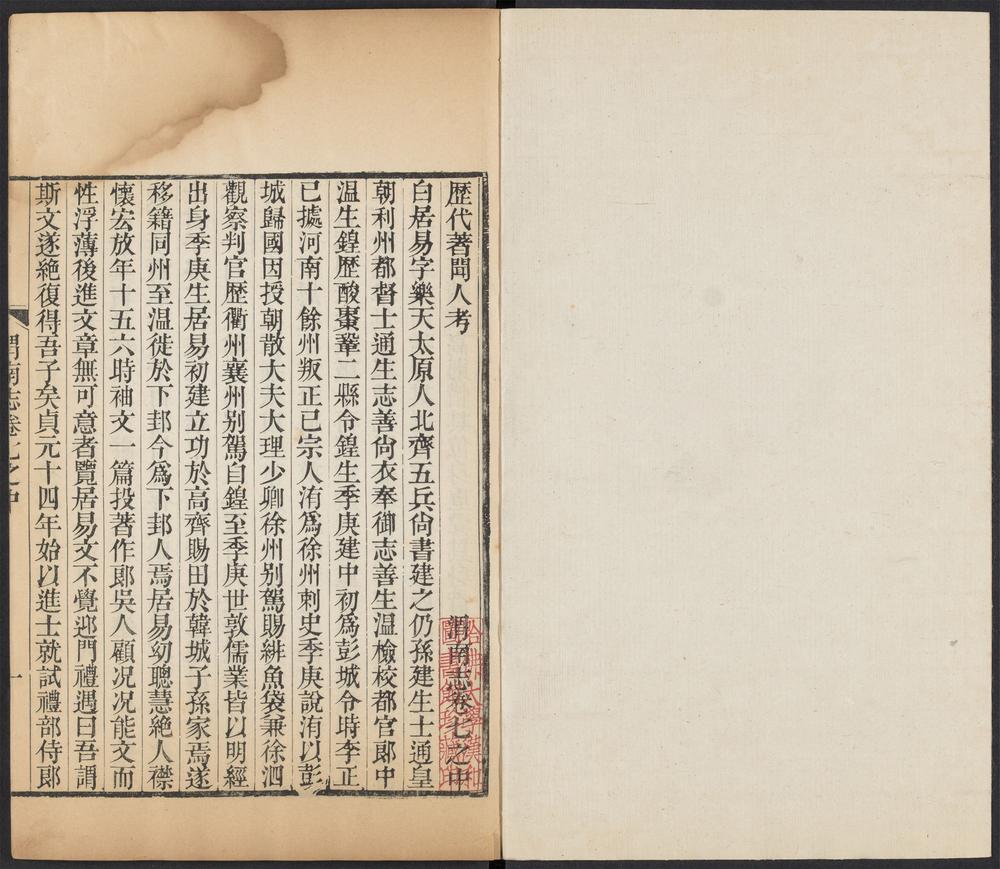 歷代著聞人考 渭南志卷七之中
白居易字樂天太原人北齊五兵尙書建之仍孫建生士通皇
朝利州都督士通生志善尙衣奉御志善生温檢校都官郞中
温生鍠歷酸棗鞏二縣令鍠生季庚建中初爲彭城令時李正
已據河南十餘州叛正已宗人洧爲徐州刺史季庚說洧以彭
城歸國因授朝散大夫大理少卿徐州别駕賜緋魚袋兼徐泗
觀察判官歷衢州襄州别駕自鍠至季庚世敦儒業皆以明經
出身季庚生居易初建立功於高齊賜田於韓城子孫家焉遂
移籍同州至温徙於下邽今爲下邽人焉居易幼聰慧絕人襟
懷宏放年十五六時袖文一篇投著作郞吳人顧况况能文而
性浮薄後進文章無可意者覽居易文不覺迎門禮遇曰吾謂
斯文遂絕復得吾子矣貞元十四年始以進士就試禮部侍郞
渭南志卷七之中 一